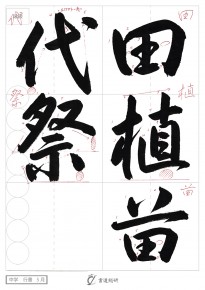 田植苗
代祭
田
植
苗
祭
中学 行書 5月
書道教研